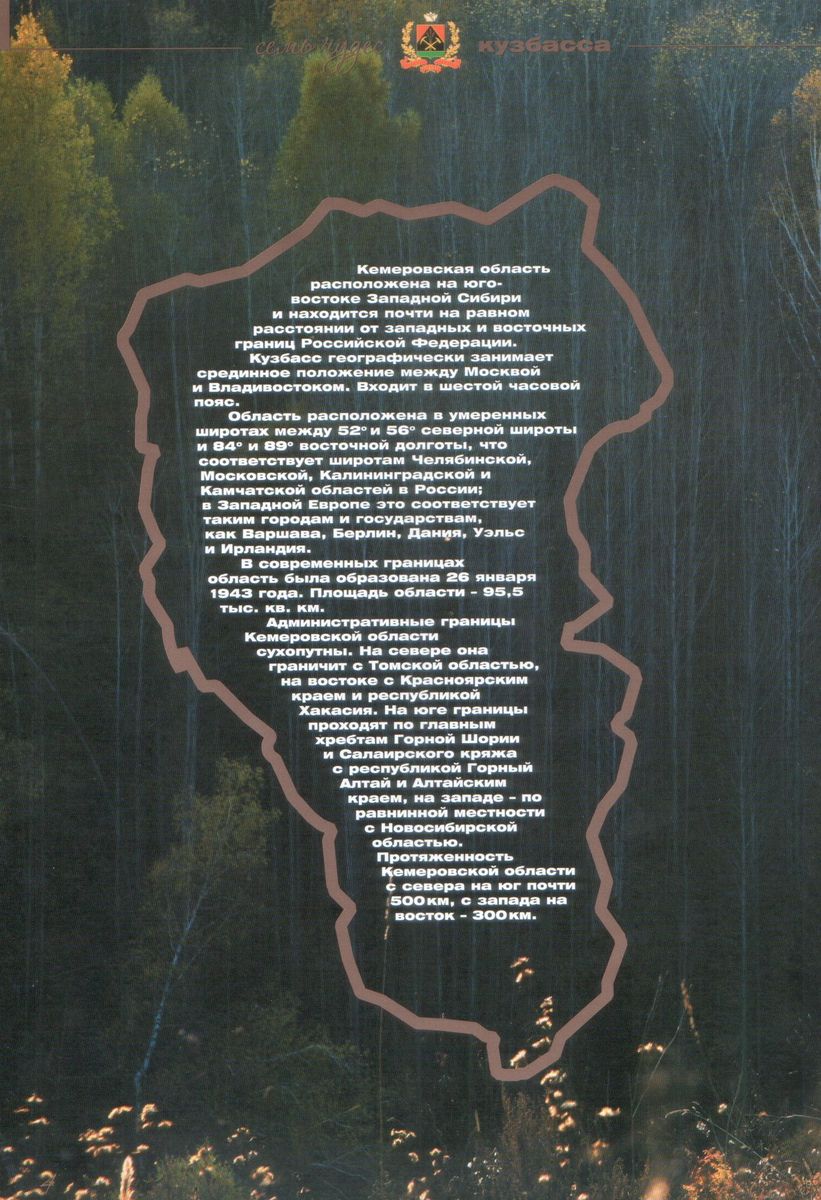 семь чудес кузбасса
Кемеровская область
расположена на юго-
востоке Западной Сибири
и находится почти на равном
расстоянии от западных и восточных
границ Российской Федерации.
Кузбасс географически занимает
срединное положение между Москвой
и Владивостоком. Входит в шестой часовой
пояс.
Область расположена в умеренных
широтах между 52° и 56° северной широты
и 84° и 89° восточной долготы, что
соответствует широтам Челябинской,
Московской, Калининградской и
Камчатской областей в России;
в Западной Европе это соответствует
таким городам и государствам,
как Варшава, Берлин, Дания, Уэльс
и Ирландия.
В современных границах
область была образована 26 января
1943 года. Площадь области - 95,5
тыс. кв. км.
Административные границы
Кемеровской области
сухопутны. На севере она
граничит с Томской областью,
на востоке с Красноярским
краем и республикой
Хакасия. На юге границы
проходят по главным
хребтам Горной Шории
и Салаирского кряжа
с республикой Горный
Алтай и Алтайским
краем, на западе - по
равнинной местности
с Новосибирской
областью.
Протяженность
Кемеровской области
с севера на юг почти
500км, с запада на
восток - 300км.